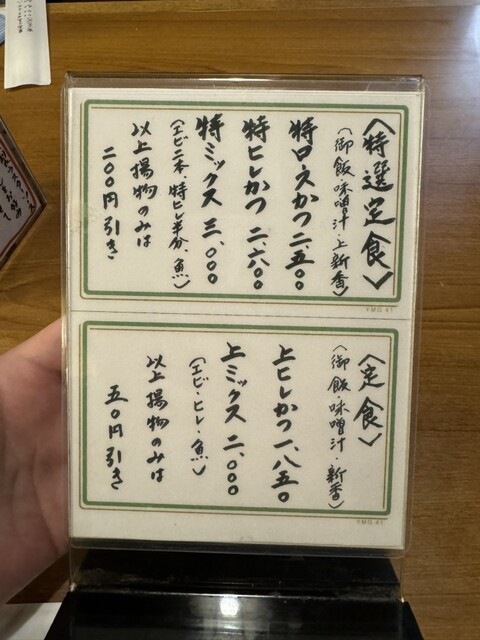 〈特選定食〉
(御飯・味噌汁・上新香)
特ロースかつ 二、五〇〇
特ヒレかつ 二、六〇〇
特ミックス 三、〇〇〇
(エビ二本・特ヒレ半分・魚)
以上揚物のみは
二〇〇円引き
YMG 41
〈定食〉
(御飯・味噌汁・新香)
上ヒレかつ 一、八五〇
上ミックス 二、〇〇〇
(エビ・ヒレ・魚)
以上揚物のみは
五〇円引き
YMG 41